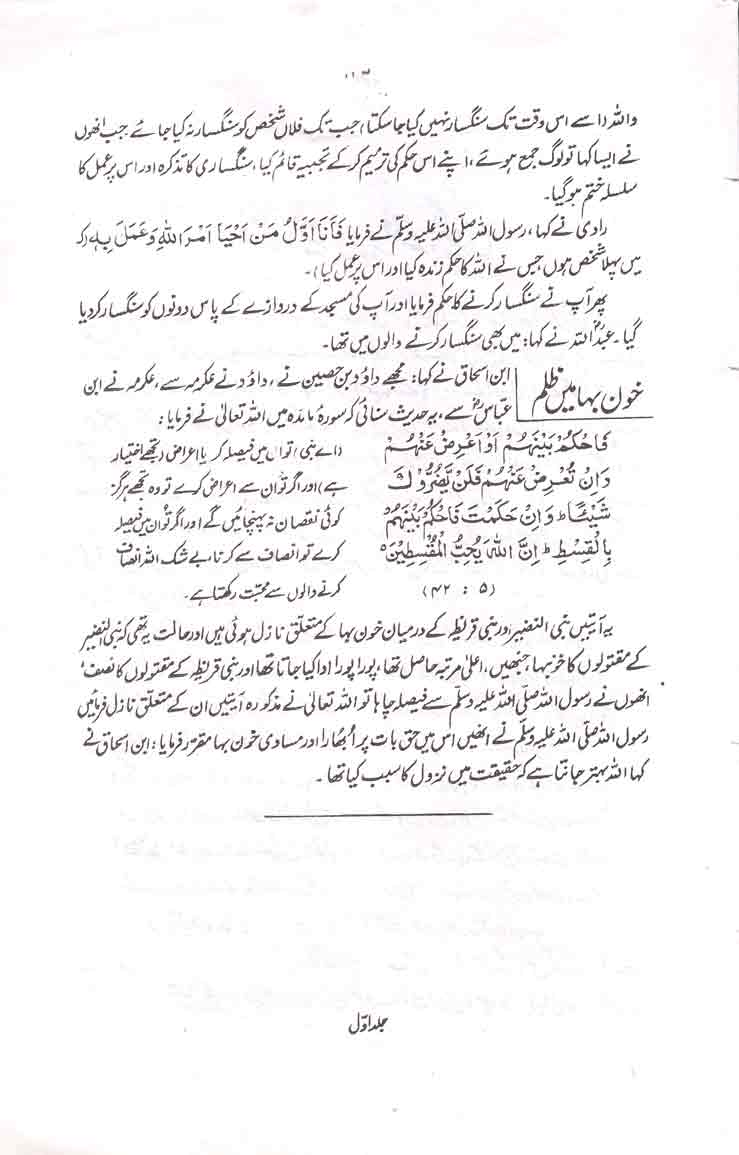 واللہ (اسے اس وقت تک سنگسار نہیں کیا جا سکتا) جب تک فلاں شخص کو سنگسار نہ کیا جائے جب انھوں
نے ایسا کہا تو لوگ جمع ہوئے، اپنے اس حکم کی ترمیم کر کے تجبیہ قائم کیا، سنگساری کا تذکرہ اور اس پر عمل کا
سلسلہ ختم ہو گیا۔
راوی نے کہا، رسول اللہ صلی اللہ علیہ وسلم نے فرمایا فَاَنَا اَوَّلُ مَنْ اَحْیَا اَمْرَ اللہِ وَعَمِلَ بِہٖ (کہ
میں پہلا شخص ہوں جس نے اللہ کا حکم زندہ کیا اور اس پر عمل کیا)۔
پھر آپ نے سنگسار کرنے کا حکم فرمایا اور آپ کی مسجد کے دروازے کے پاس دونوں کو سنگسار کر دیا
گیا۔ عبداللہ نے کہا: میں بھی سنگسار کرنے والوں میں تھا۔
خون بہا میں ظلم
ابن اسحاق نے کہا: مجھے داؤد بن حصین نے، داؤد نے عکرمہ سے، عکرمہ نے ابن
عباسؓ سے، یہ حدیث سنائی کہ سورۂ مائدہ میں اللہ تعالیٰ نے فرمایا:
فَاحْکُمْ بَیْنَھُمْ اَوْ اَعْرِضْ عَنْھُمْ
وَاِنْ تُعْرِضْ عَنْھُمْ فَلَنْ یَّضُرُّوْکَ
شَیْئًا ط وَاِنْ حَکَمْتَ فَاحْکُمْ بَیْنَھُمْ
بِالْقِسْطِ ط اِنَّ اللہَ یُحِبُّ الْمُقْسِطِیْنَ ہ
(۵ : ۴۲)
(اے نبی) تو ان میں فیصلہ کر یا اعراض (تجھے اختیار
ہے) اور اگر تو ان سے اعراض کرے تو وہ تجھے ہرگز
کوئی نقصان نہ پہنچائیں گے اور اگر تو ان میں فیصلہ
کرے تو انصاف سے کرنا بے شک اللہ انصاف
کرنے والوں سے محبت رکھتا ہے۔
یہ آیتیں بنی النضیر اور بنی قریظہ کے درمیان خون بہا کے متعلق نازل ہوئی ہیں اور حالت یہ تھی کہ بنی النضیر
کے مقتولوں کا خوں بہا جنھیں، اعلیٰ مرتبہ حاصل تھا، پورا پورا ادا کیا جاتا تھا اور بنی قریظہ کے مقتولوں کا نصف،
انھوں نے رسول اللہ صلی اللہ علیہ وسلم سے فیصلہ چاہا تو اللہ تعالیٰ نے مذکورہ آیتیں ان کے متعلق نازل فرمائیں
رسول اللہ صلی اللہ علیہ وسلم نے انھیں اس میں حق بات پر اُبھارا اور مساوی خون بہا مقرر فرمایا: ابن اسحاق نے
کہا اللہ بہتر جانتا ہے کہ حقیقت میں نزول کا سبب کیا تھا۔
جلد اوّل